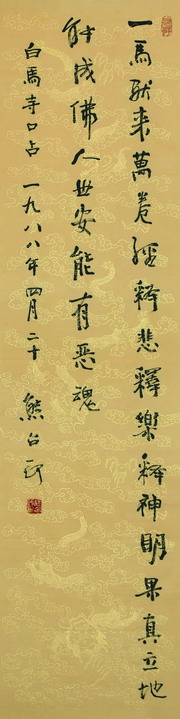 一馬馱来萬卷經釋悲釋樂釋神明果真立地
能成佛人世安能有惡魂
白馬寺口占 一九八八年四月二十 熊召政